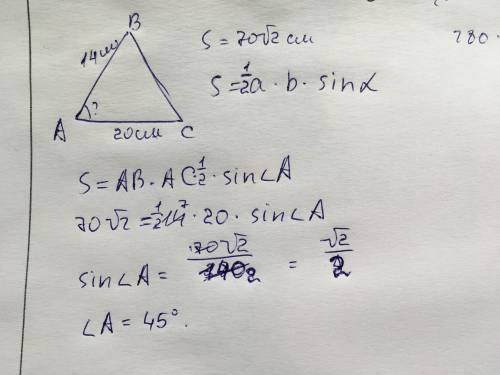 B
14см
?
A
20см
C
S = 70√2 см
S = 1/2 a · b · sin α
280 ·
S = AB · AC 1/2 · sin∠A
70√2 = 1/2 14 7 · 20 · sin∠A
sin∠A = 70√2 / 140 2 = √2 / 2
∠A = 45°.